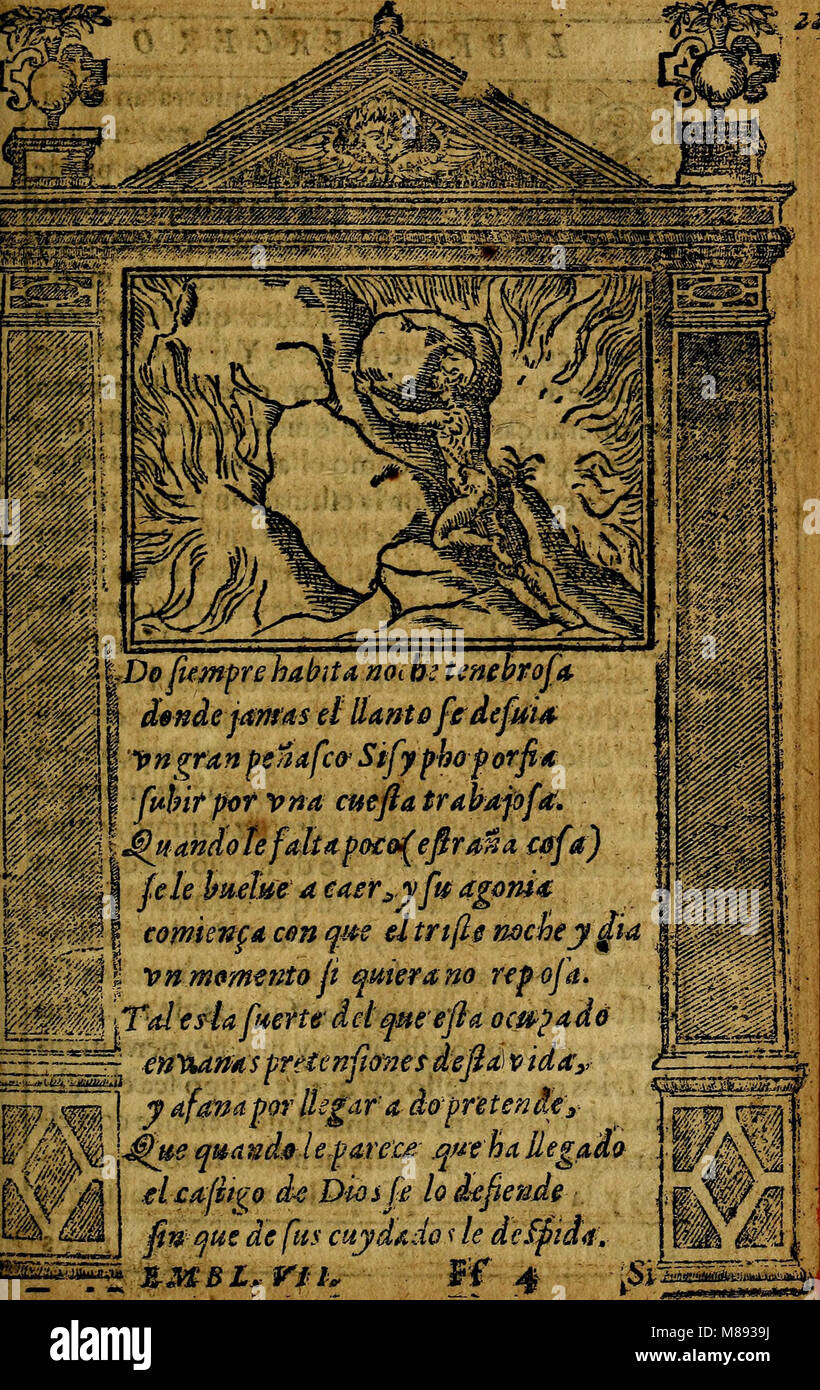 Do ſiempre habita noche tenebroſa
donde jamas el llanto ſe deſuia
vn gran peñaſco Siſypho porfia
ſubir por vna cueſta trabajoſa.
Quando le falta poco (eſtraña coſa)
ſe le buelue a caer, y ſu agonia
comiença con que el triſte noche y dia
vn momento ſi quiera no repoſa.
Tal es la ſuerte del que eſta ocupado
en vanas pretenſiones deſta vida,
y afana por llegar a do pretende,
Que quando le parece que ha llegado
el caſtigo de Dios ſe lo defiende
ſin que de ſus cuydados le deſpida.
EMBL. VII. Ff 4 Si
alamy
Image ID: M8939J
www.alamy.com